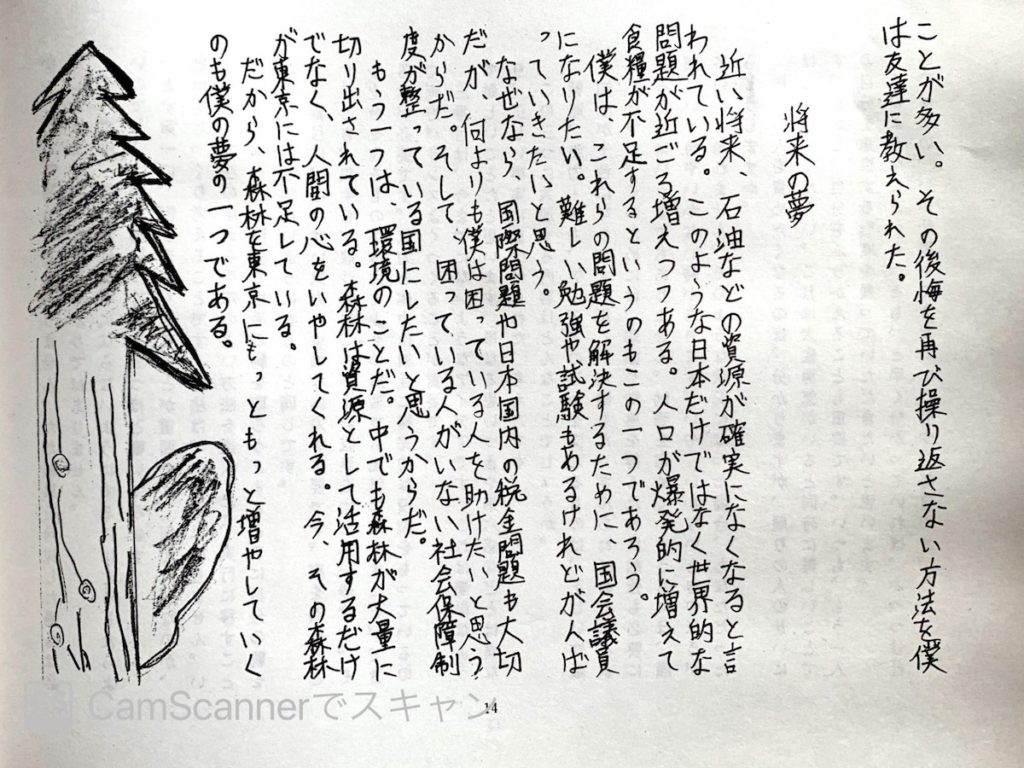 ことが多い。その後悔を再び操り返さない方法を僕
は友達に教えられた。
将来の夢
近い将来、石油などの資源が確実になくなると言
われている。このような日本だけではなく世界的な
問題が近ごろ増えつつある。人口が爆発的に増えて
食糧が不足するというのもこの一つであろう。
僕は、これらの問題を解決するために、国会議員
になりたい。難しい勉強や試験もあるけれどがんば
っていきたいと思う。
なぜなら、国際問題や日本国内の税金問題も大切
だが、何よりも僕は困っている人を助けたいと思う
からだ。そして、困っている人がいない社会保障制
度が整っている国にしたいと思うからだ。
もう一つは、環境のことだ。中でも森林が大量に
切り出されている。森林は資源として活用するだけ
でなく、人間の心をいやしてくれる。今、その森林
が東京には不足している。
だから、森林を東京にもっともっと増やしていく
のも僕の夢の一つである。
14
CamScannerでスキャン